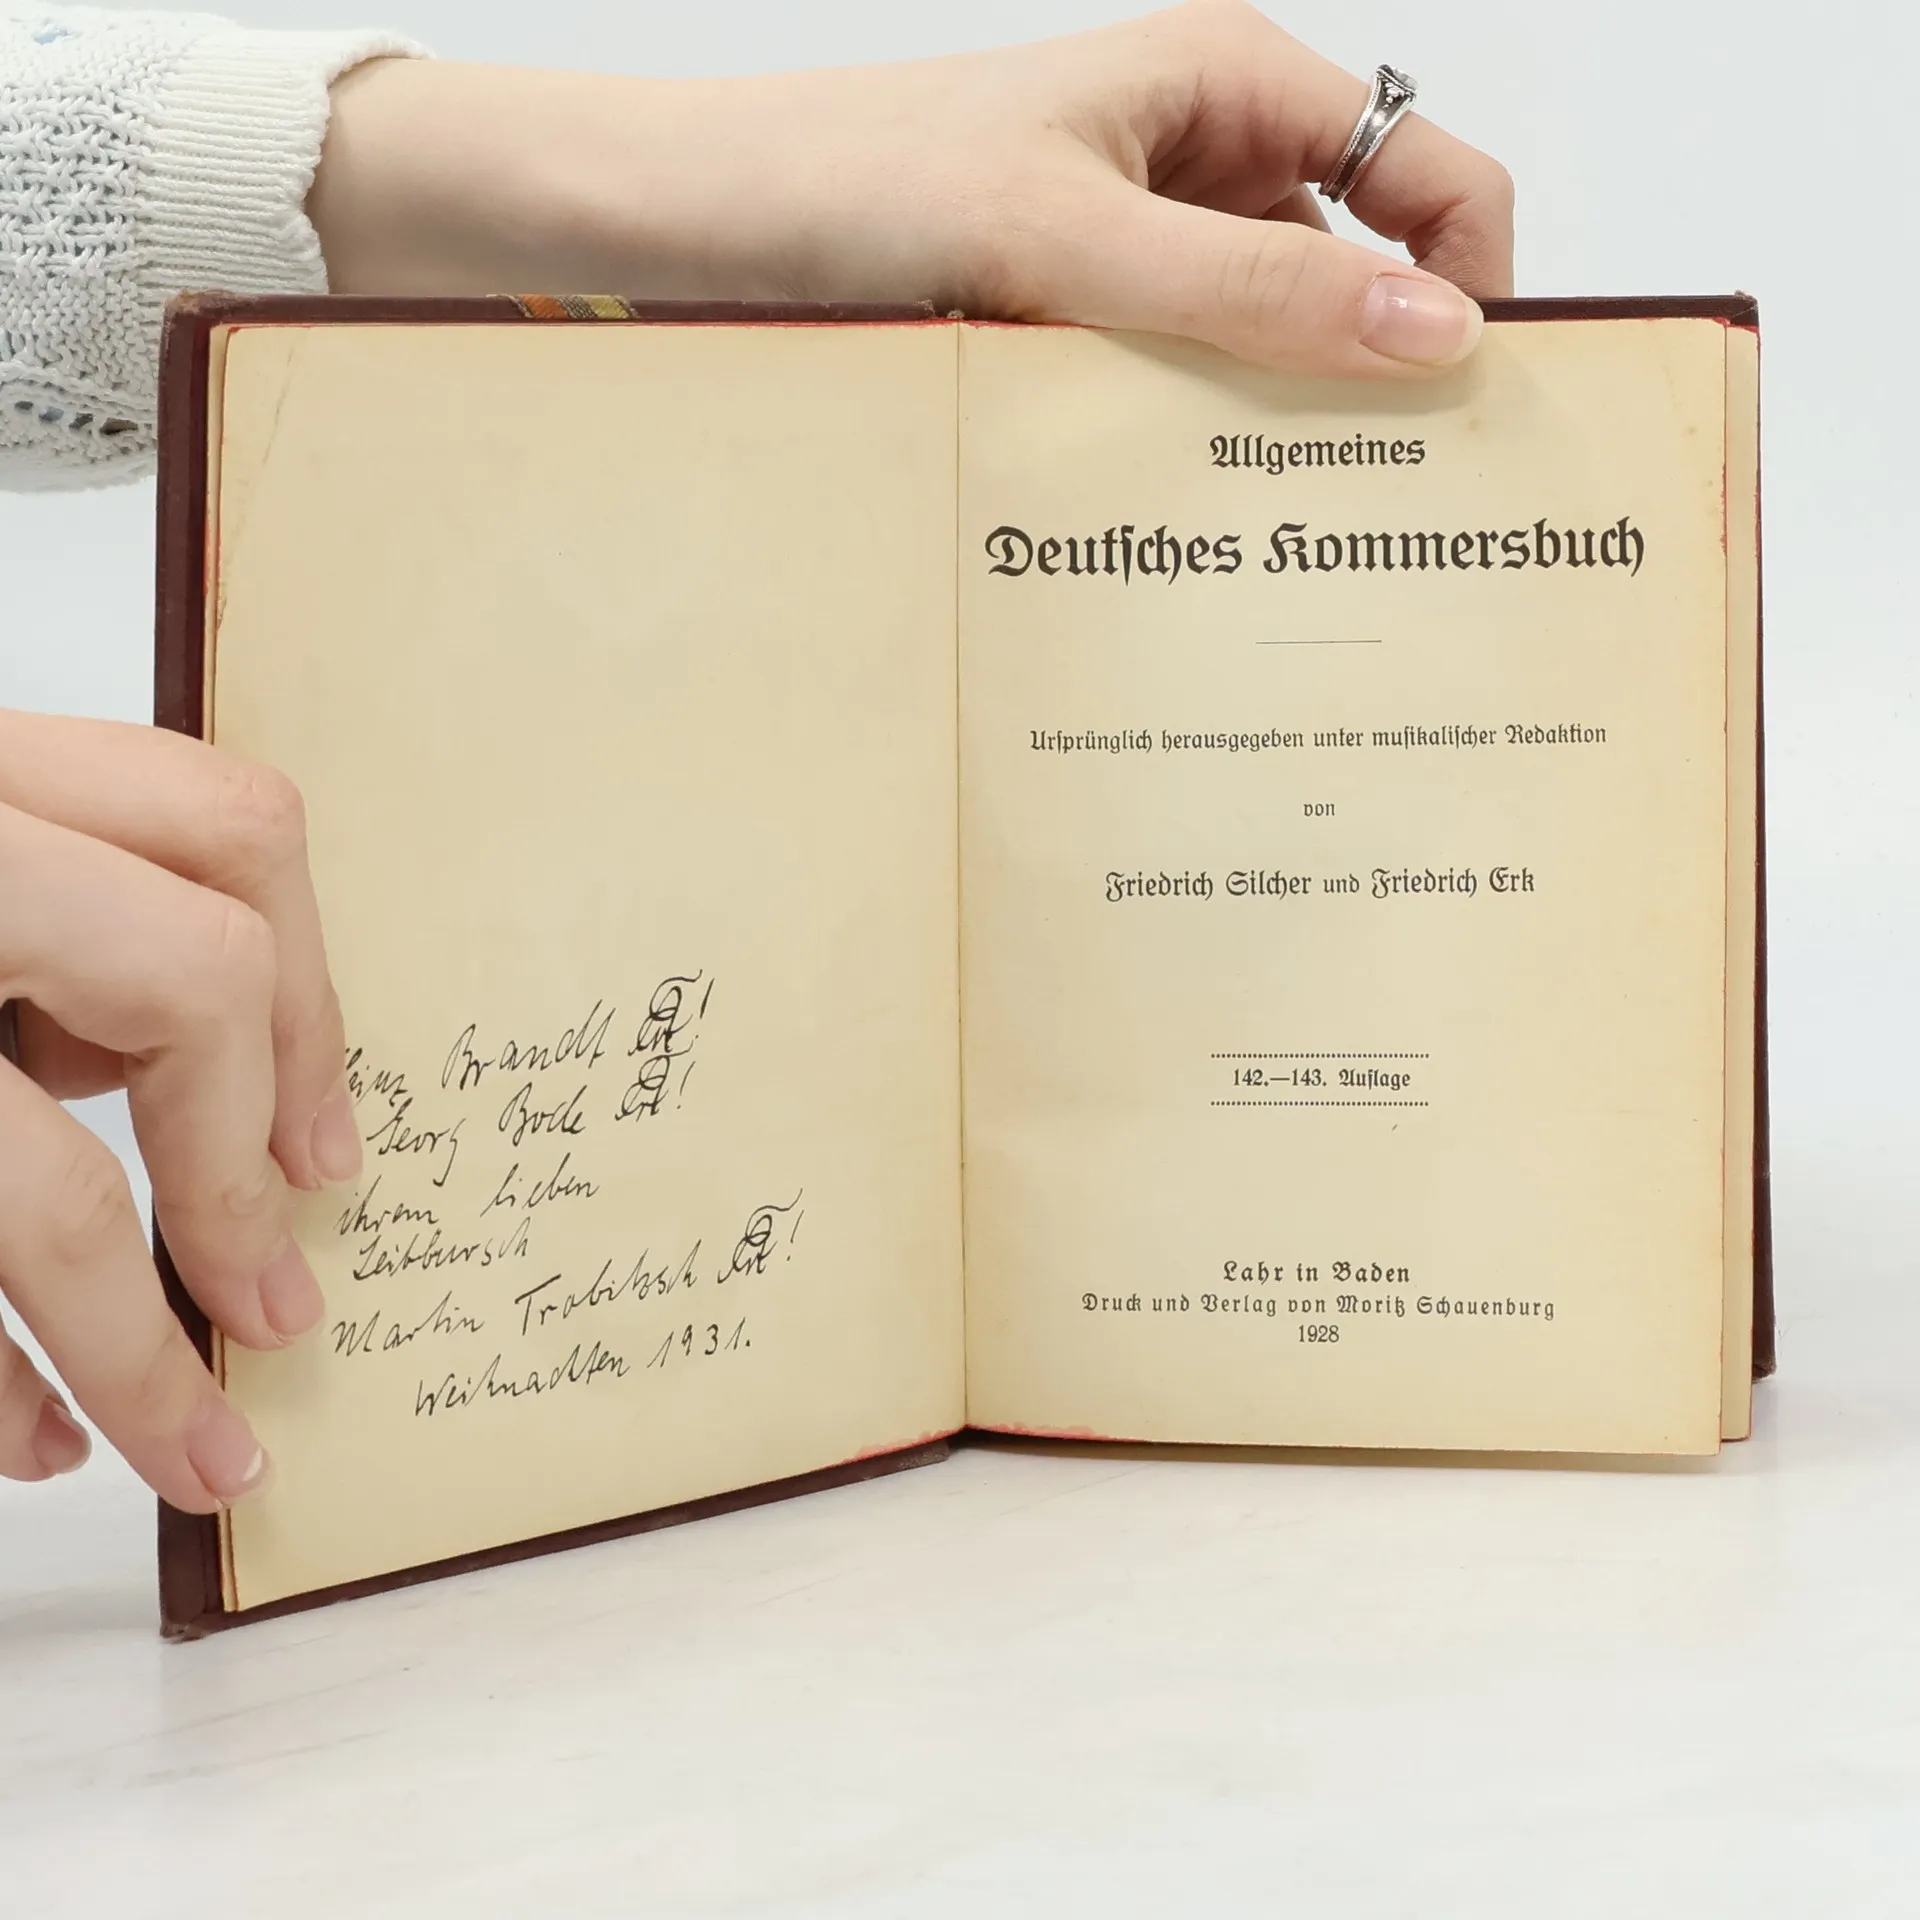 Heinz Brandt
Georg Bode
ihrem lieben
Leibbursch
Martin Trobitzsch
Weihnachten 1931.
Allgemeines
Deutsches Kommersbuch
Ursprünglich herausgegeben unter musikalischer Redaktion
von
Friedrich Silcher und Friedrich Erk
142.—143. Auflage
Lahr in Baden
Druck und Verlag von Moritz Schauenburg
1928